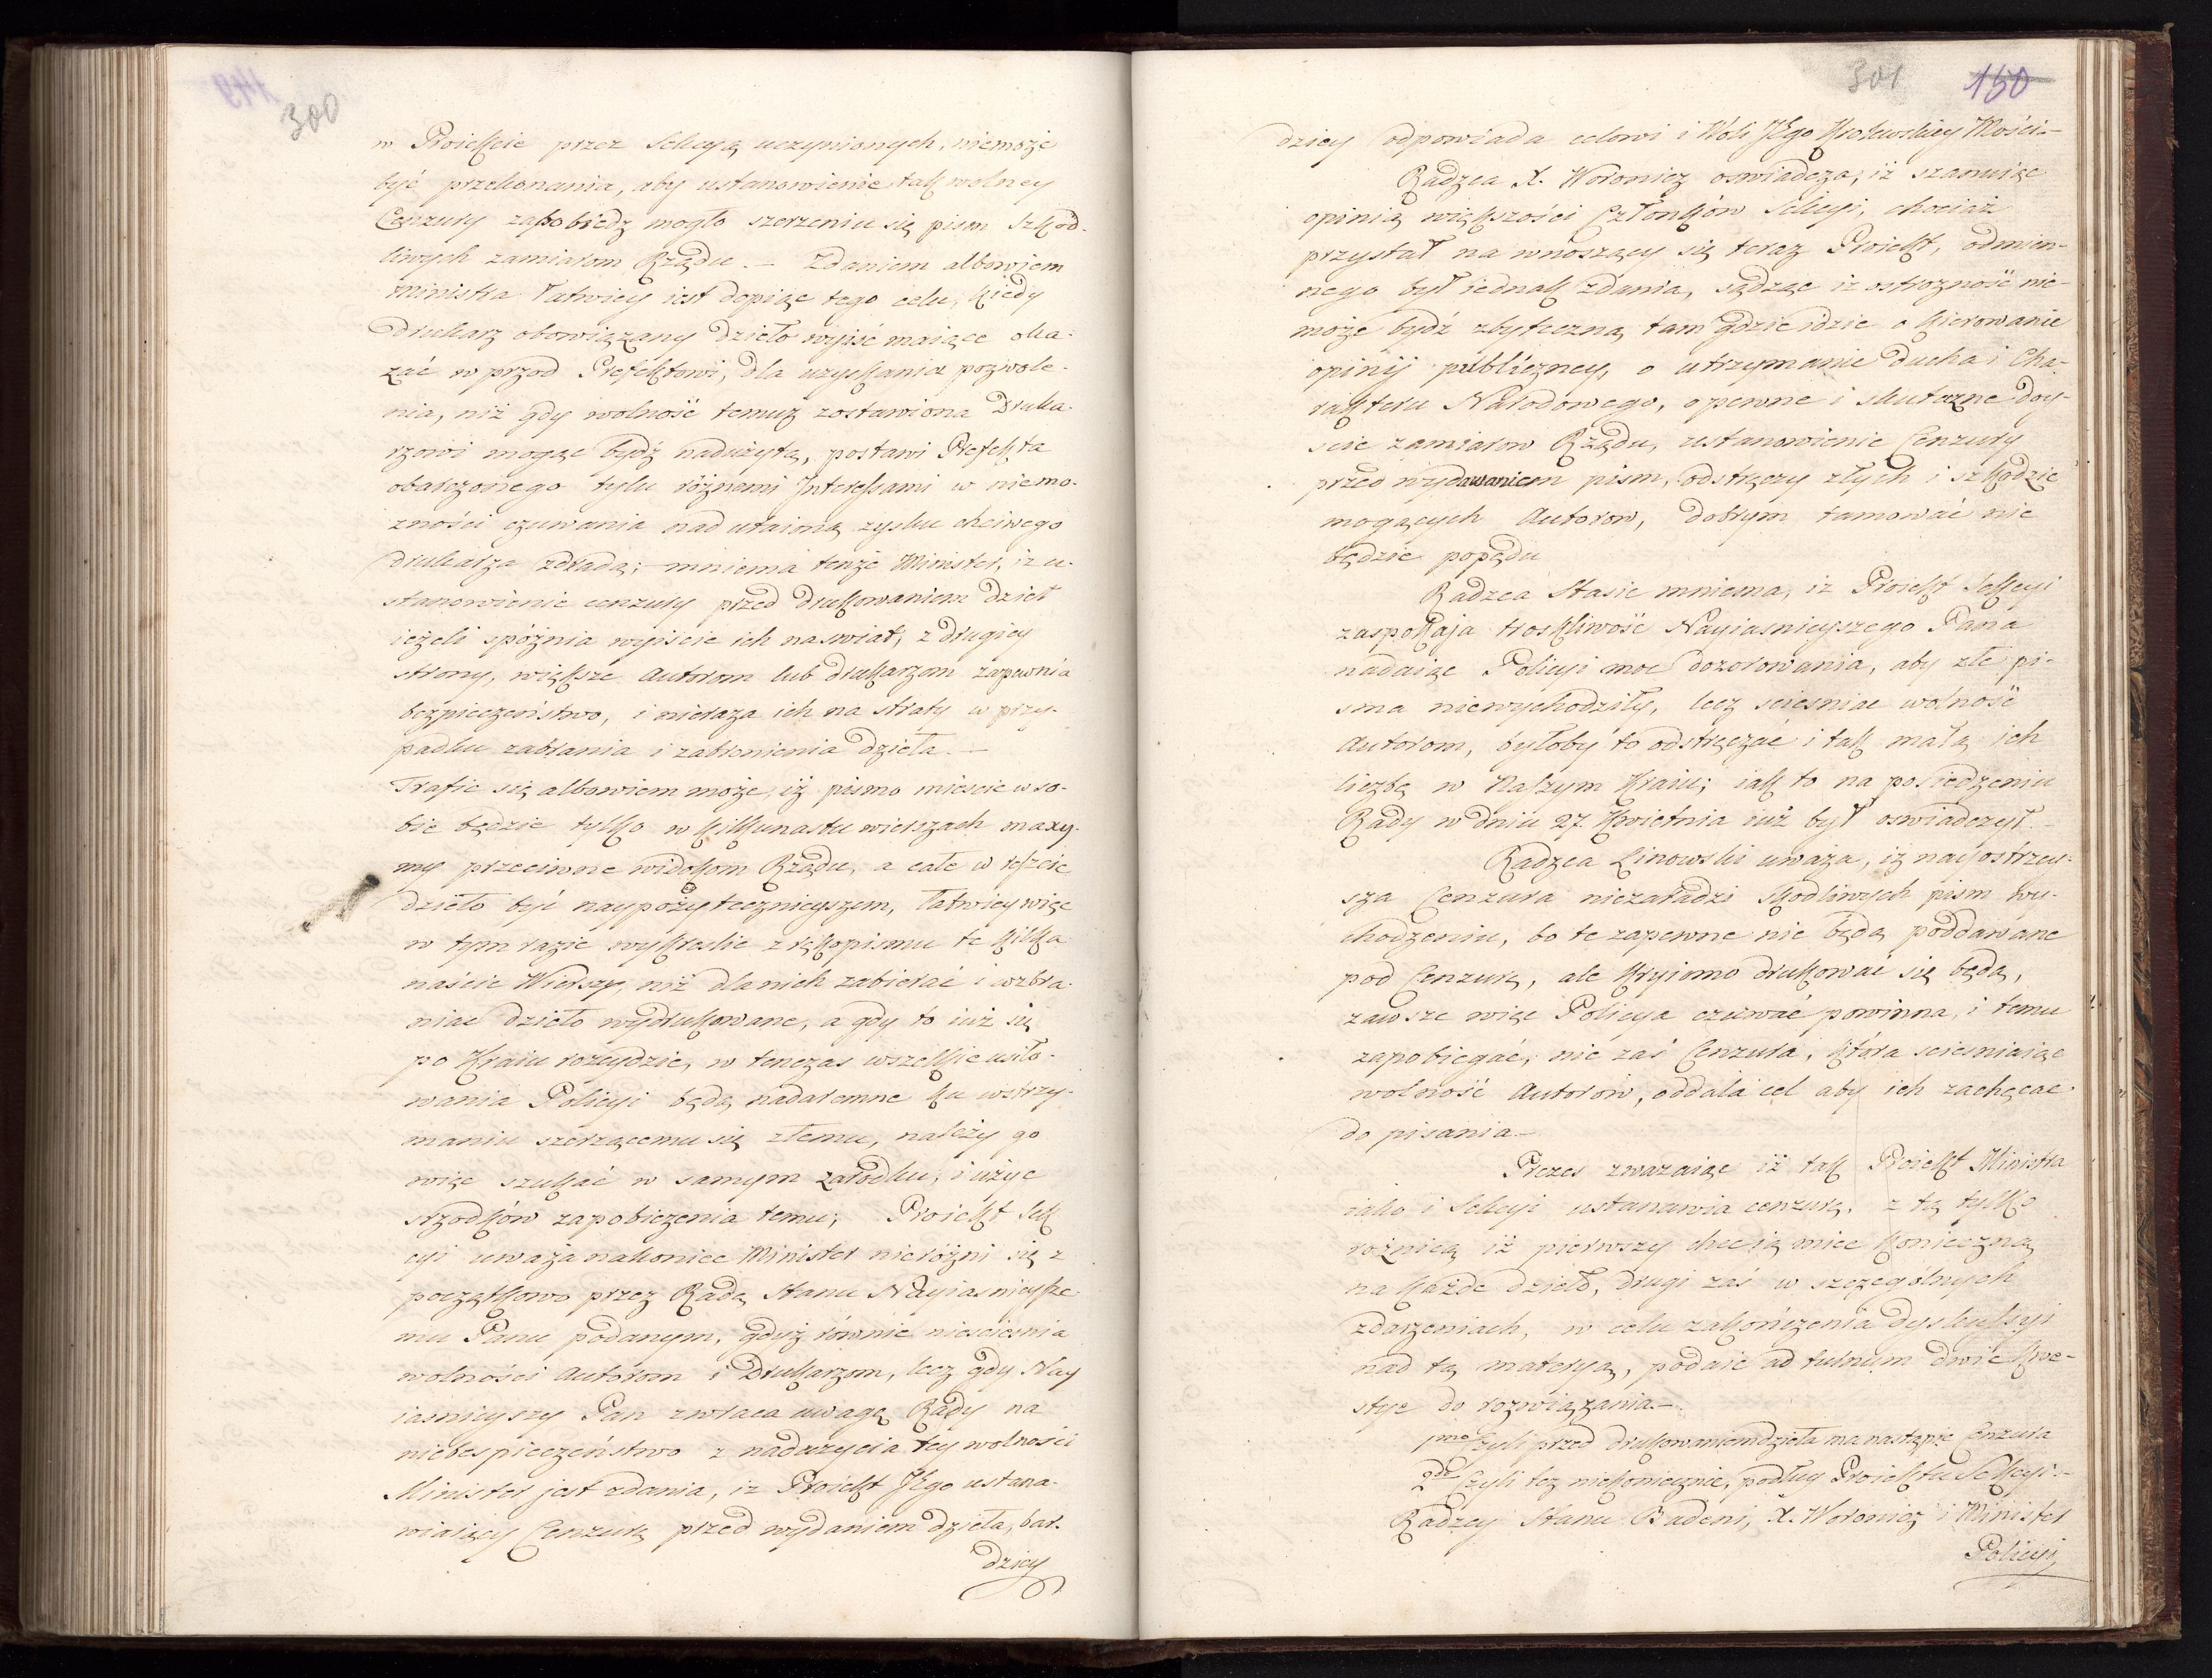 300
w Proiekcie przez Sekcyą uczynionych, niemoże
być przekonania, aby ustanowienie tak wolney
Cenzury zapobiedz mogło szerzeniu się pism szkod-
liwych zamiarom Rządu. – Zdaniem albowiem
Ministra łatwiey iest dopiąc tego celu, kiedy
drukarz obowiązany dzieło wyiść maiące oka-
zać w przod Prefektowi, dla uzyskania pozwole-
nia, niż gdy wolność temuż zostawiona Druka-
rzowi mogąc bydź nadużytą, postawi Prefekta
obarczonego tylu różnemi Interessami w niemo-
zności czuwania nad utaioną zysku chciwego
drukarza zdradą; mniema tenże Minister, iz u-
stanowienie cenzury przed drukowaniem dzieł
ieżeli spóźnia wyiście ich naswiat, z drugiey
strony, większe Autorom lub drukarzom zapewnia
bezpieczeństwo, i nieraza ich na straty w przy-
padku zabrania i zabronienia dzieła. –
Trafic się albowiem może, iż pismo miescic w so-
bie będzie tylko w kilkunastu wierszach maxy-
my przeciwne widokom Rządu, a całe w reszcie
dzieło być naypożytecznieyszem, łatwiey więc
w tym razie wykreslic z rękopismu te kilka
naście Wierszy, niż dla nich zabierać i wzbra-
niac dzieło wydrukowane, a gdy to iuż się
po Kraiu rozeydzie, w tenczas wszelkie usiło-
wania Policyi będą nadaremne ku wstrzy-
maniu szerzącemu się złemu, należy go
więc szukać w samym zarodku, i użyc
srzodków zapobieżenia temu; Proiekt Sek
cyi uważa nakoniec Minister nieróżni się z
początkowo przez Radę Stanu Nayiasnieysze
mu Panu podanym, gdyż równie nieściesnia
wolności Autorom i Drukarzom, lecz gdy Nay
iasnieyszy Pan zwraca uwagę Rady na
niebespieczeństwo z nadużycia tey wolności
Minister jest zdania, iz Proiekt JEgo ustana-
wiaiący Cenzurę przed wydaniem dzieła, bar-
dziey
301 150
dziey odpowiada celowi i Woli JEgo Krolewskiey Mości –
Radzca X. Woronicz oswiadcza, iż szanuiąc
opinią większości Członków Sekcyi, chociaż
przystał na wnoszący się teraz Proiekt, odmien-
nego był iednak zdania, sądząc iz ostrożność nie-
może bydź zbyteczną tam gdzie idzie o kierowanie
opinij publiczney, o utrzymanie ducha i Cha-
rakteru Narodowego, o pewne i skuteczne doy-
scie zamiarow Rządu, ustanowienie Cenzury
przed wydawaniem pism, odstręczy złych i szkodzic
mogących Autorow, dobrym tamować nie
będzie popędu
Radzca Stasic mniema, iz Proiekt Sekcyi
zaspokaja troskliwość Nayiasnieyszego Pana
nadaiąc Policyi moc dozorowania, aby złe pi-
sma niewychodziły, lecz sciesniac wolność
Autorom, byłoby to odstręczać i tak małą ich
liczbę w Naszym Kraiu; iak to na posiedzeniu
Rady w dniu 27 Kwietnia iuż był oswiadczył.
Radzca Linowski uważa, iż nayostrzey-
sza Cenzura niezaradzi skodliwych pism wy-
chodzeniu, bo te zapewne nie będą poddawane
pod Cenzurę, ale kryiomo drukować się będą,
zawsze więc Policya czuwać powinna, i temu
zapobiegać, nie zaś Cenzura, która sciesniaiąc
wolność Autorów, oddala cel aby ich zachęcac
do pisania –
Prezes zwazaiąc iż tak Proiekt Ministra
iako i Sekcyi ustanawia cenzurę, z tą tylko
rożnicą iż pierwszy chce ią miec konieczną
na każde dzieło, drugi zaś w szczególnych
zdarzeniach, w celu zakończenia dyskussyi
nad tą materyą, podaie ad turnum dwie kwe-
stye do rozwiązania –
1mo Czyli przed drukowaniem dzieła ma nastąpić Cenzura
2do Czyli tez niekoniecznie, podług Proiektu Sekcyi –
Radzcy Stanu Badeni, X. Woronicz i Minister
Policyi